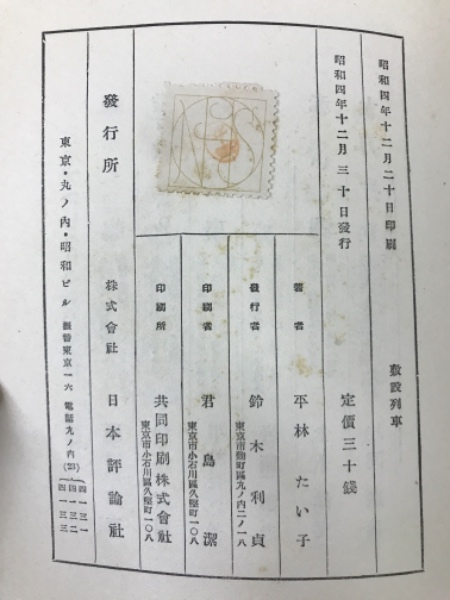 昭和四年十二月二十日印刷
敷設列車
昭和四年十二月三十日發行
定價三十錢
著者
平林たい子
發行者
鈴木利貞
東京市麴町區丸ノ內二ノ一八
印刷者
君島潔
東京市小石川區久堅町一〇八
印刷所
共同印刷株式會社
東京市小石川區久堅町一〇八
發行所
株式會社
日本評論社
東京・丸ノ內・昭和ビル
振替東京一六
電話丸ノ內(23)
四一三一
四一三二
四一三三